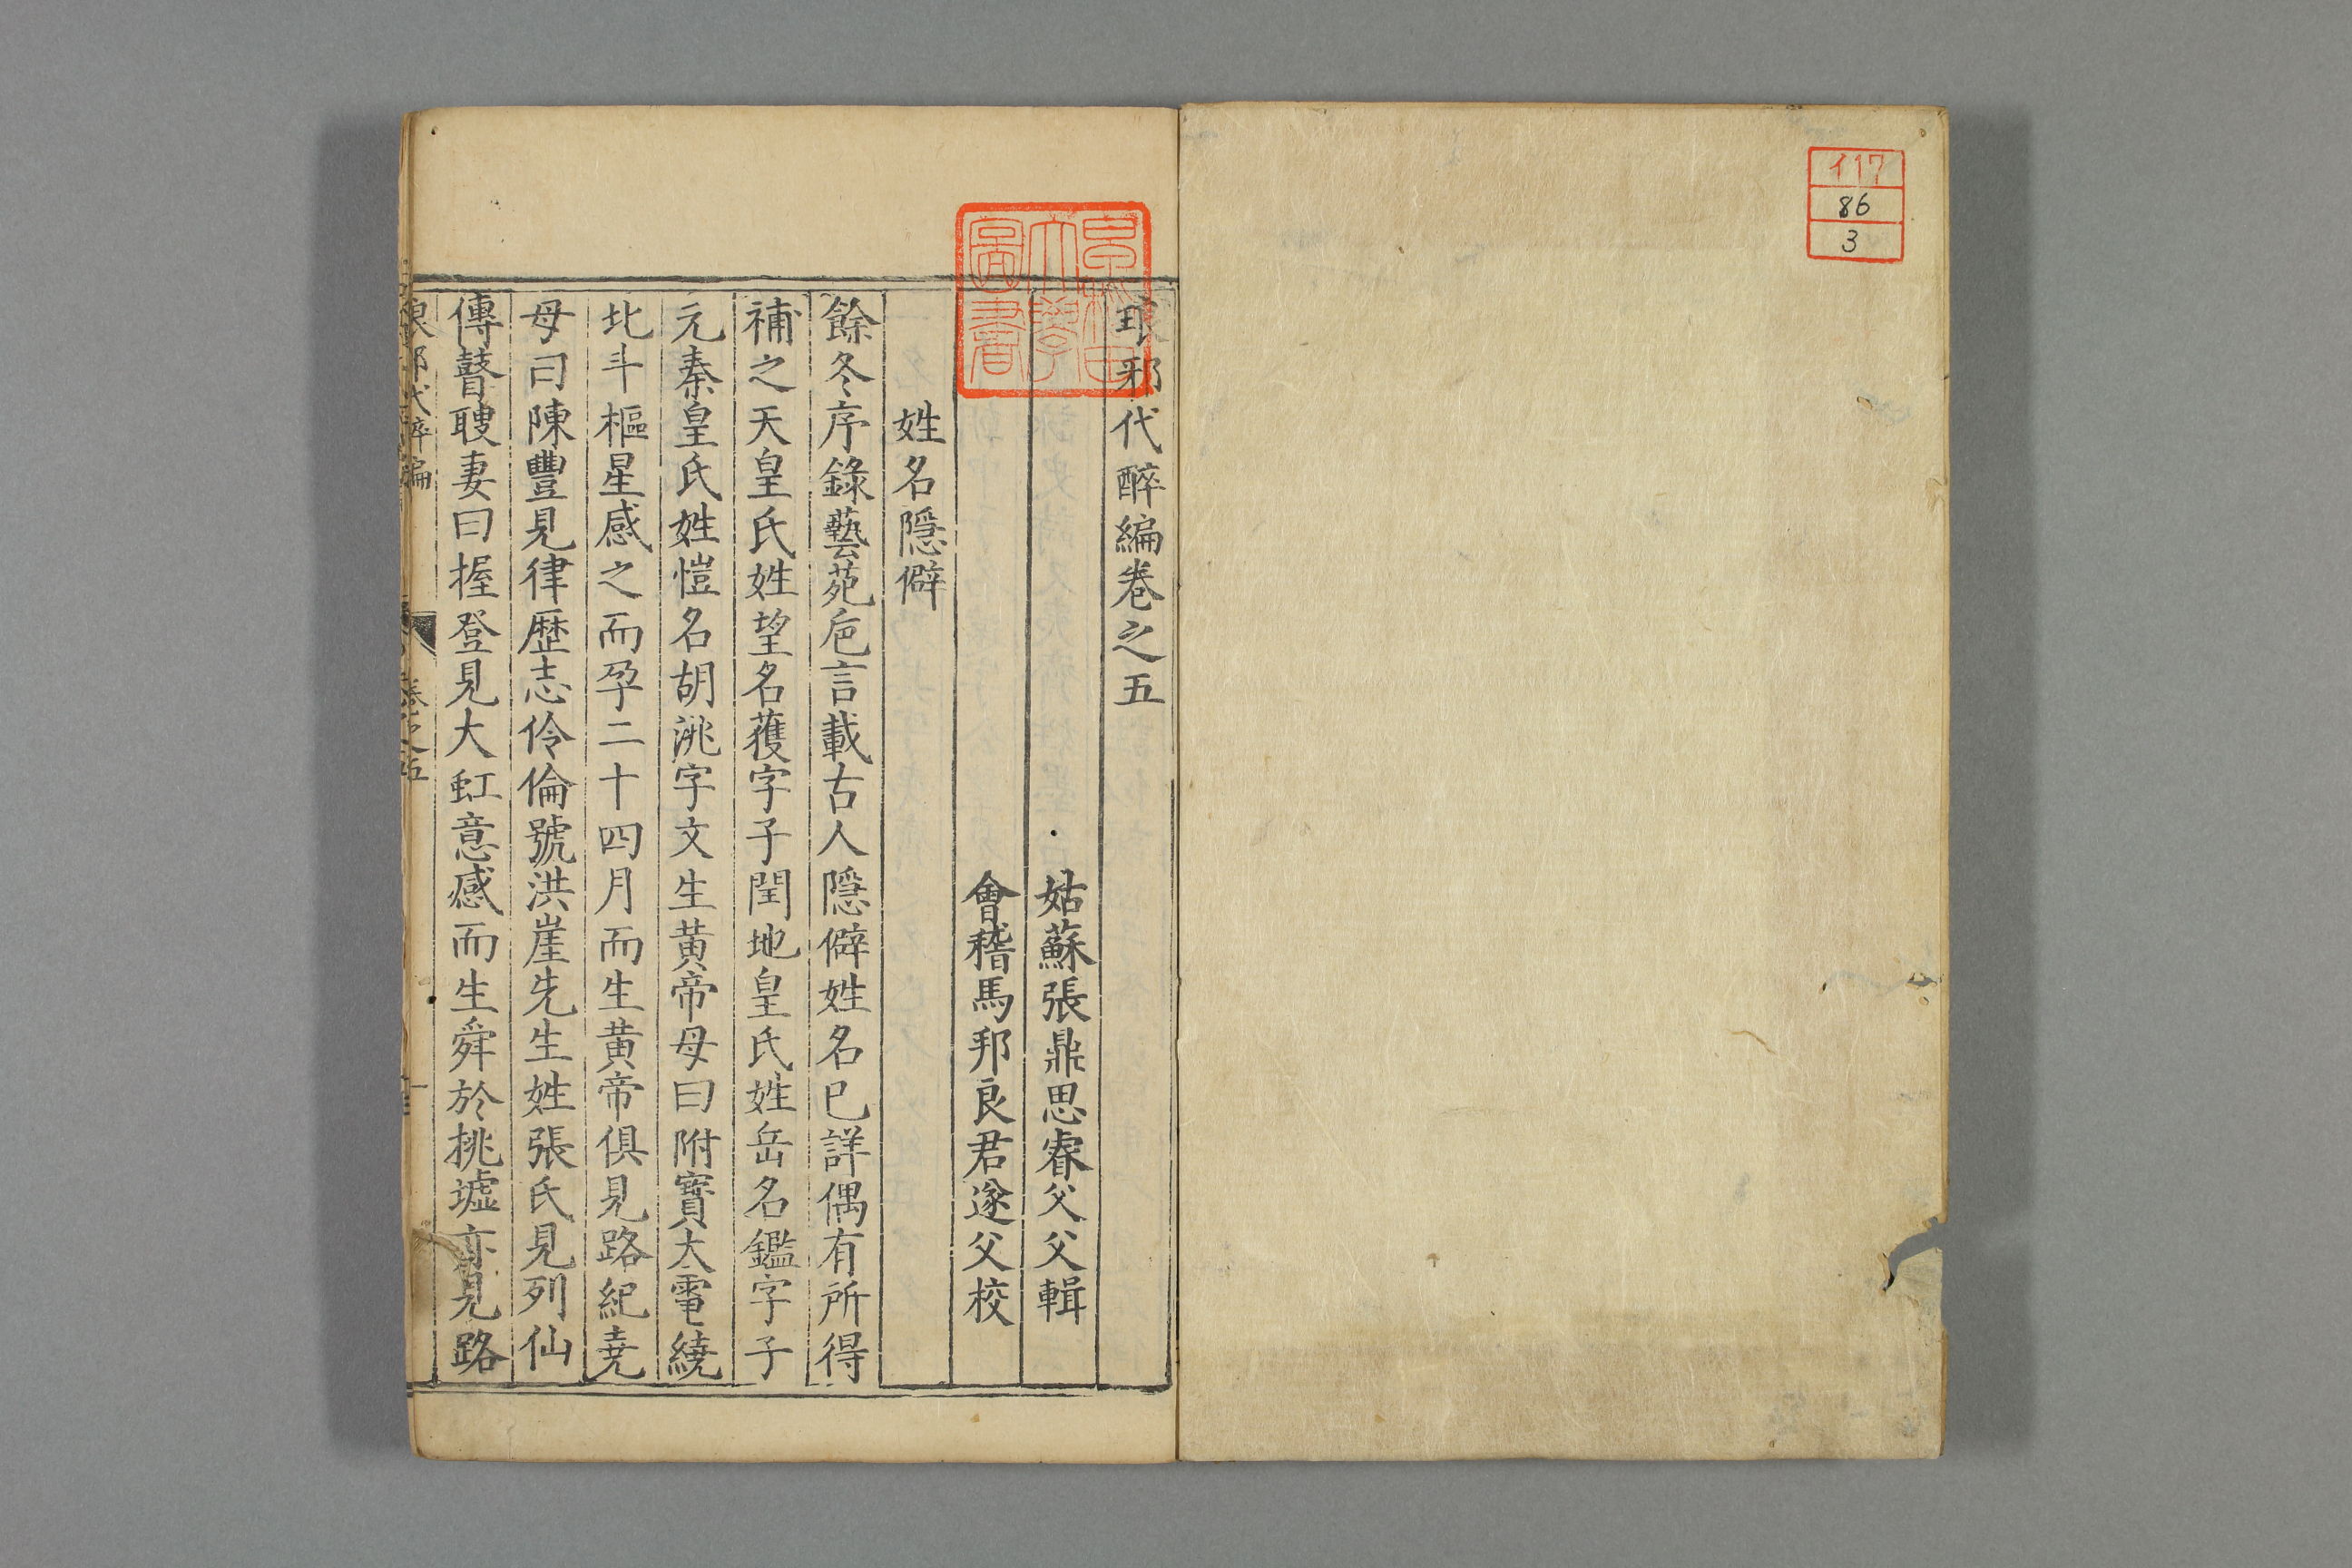 イ17
86
3
琅邪代醉編卷之五
姑蘇張鼎思睿父父輯
會稽馬邦良君遂父校
姓名隱僻
餘冬序錄藝苑巵言載古人隱僻姓名已詳偶有所得
補之天皇氏姓望名蒦字子閏地皇氏姓岳名鑑字子
元秦皇氏姓愷名胡洮字文生黄帝母曰附寳大電繞
北斗樞星感之而孕二十四月而生黄帝俱見路紀尭
母曰陳豐見律歷志伶倫號洪崖先生姓張氏見列仙
傳瞽瞍妻曰握登見大虹意感而生舜於挑墟亦見路
琅邪代醉編
卷之五
一
早稻田大學圖書